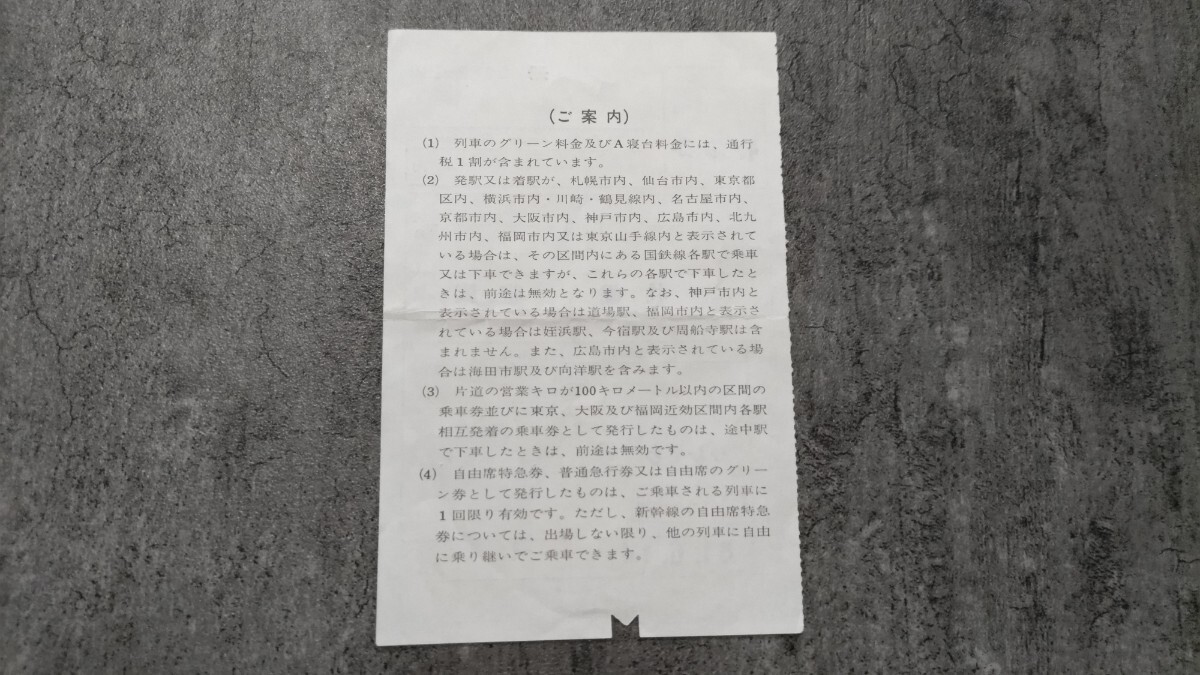 (ご案内)
(1) 列車のグリーン料金及びA寝台料金には、通行
税1割が含まれています。
(2) 発駅又は着駅が、札幌市内、仙台市内、東京都
区内、横浜市内・川崎・鶴見線内、名古屋市内、
京都市内、大阪市内、神戸市内、広島市内、北九
州市内、福岡市内又は東京山手線内と表示されて
いる場合は、その区間内にある国鉄線各駅で乗車
又は下車できますが、これらの各駅で下車したと
きは、前途は無効となります。なお、神戸市内と
表示されている場合は道場駅、福岡市内と表示さ
れている場合は姪浜駅、今宿駅及び周船寺駅は含
まれません。また、広島市内と表示されている場
合は海田市駅及び向洋駅を含みます。
(3) 片道の営業キロが100キロメートル以内の区間の
乗車券並びに東京、大阪及び福岡近効区間内各駅
相互発着の乗車券として発行したものは、途中駅
で下車したときは、前途は無効です。
(4) 自由席特急券、普通急行券又は自由席のグリー
ン券として発行したものは、ご乗車される列車に
1回限り有効です。ただし、新幹線の自由席特急
券については、出場しない限り、他の列車に自由
に乗り継いでご乗車できます。